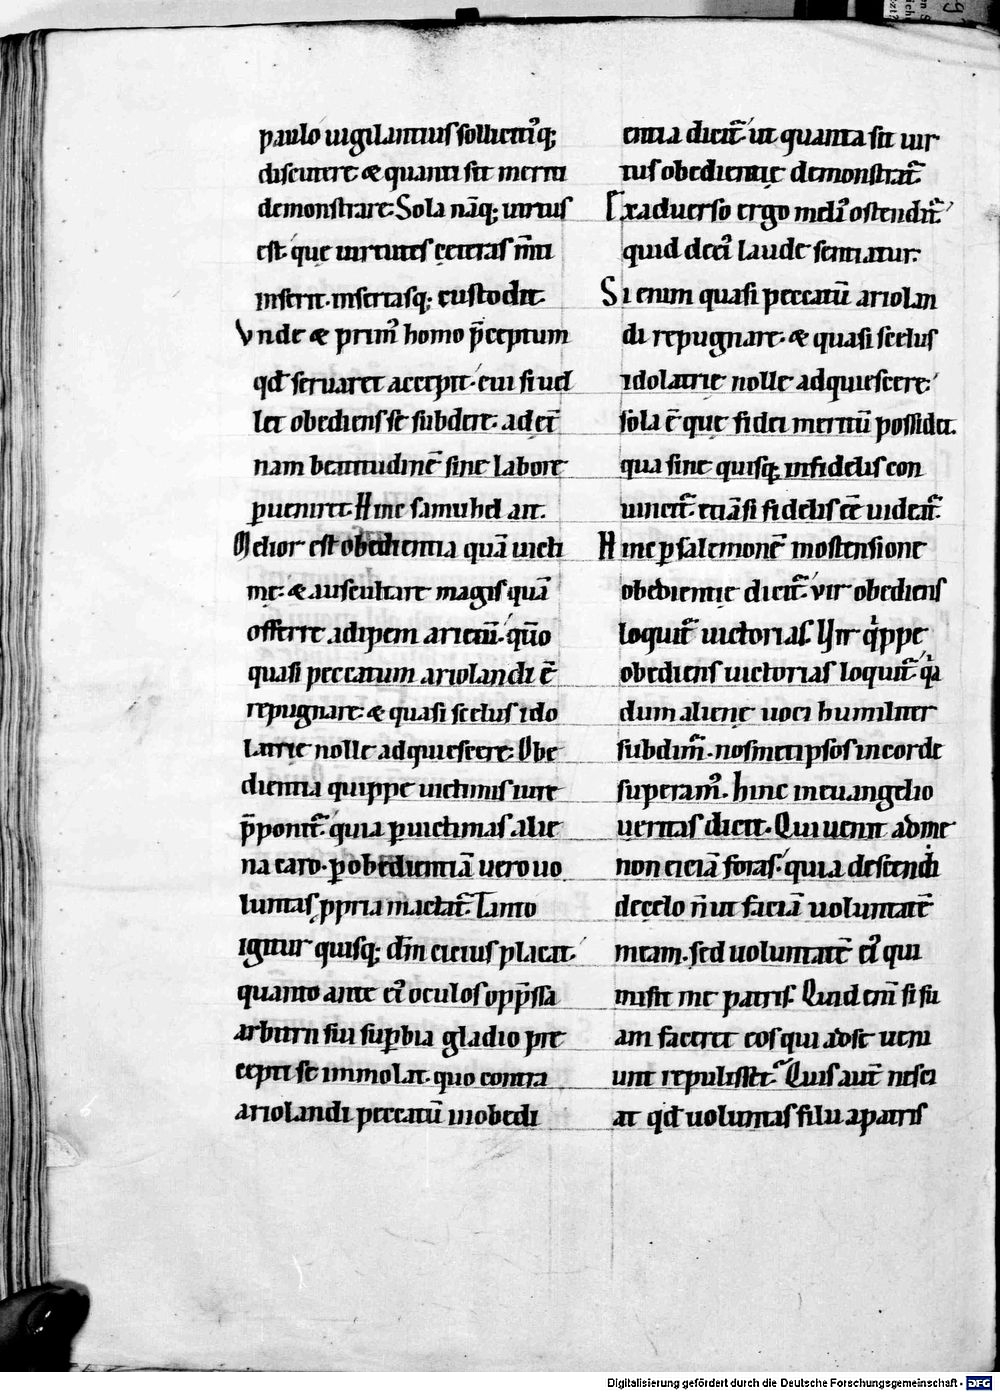 paulo uigilantius sollicitiꝰq;
discutere & quanti sit meriti
demonstrare. Sola nāq; uirtus
est. quę uirtutes cęteras m̄ti
inserit. insertasq; custodit.
Vnde & primꝰ homo p̄ceptum
qđ seruaret accepit. cui si uel
let obediens se subdere. ad ęt̄
nam beatitudinē sine labore
ꝑueniret. Hinc samuhel ait.
Melior est obedientia quā uicti
mę. & auscultare magis quā
offerre adipem arietū. qm̄o
quasi peccatum ariolandi ē
repugnare. & quasi scelus ido
latrię nolle adquiescere. Obe
dientia quippe uictimis iure
p̄ponit᷑. quia ꝑ uictimas alie
na caro. ꝑ obedientiā uero uo
luntas ꝓpria mactat᷑. Tanto
igitur quisq; dm̄ citius placat.
quanto ante eiꝰ oculos opp̄ssa
arbitrii sui suꝑbia gladio pre
cepti se immolat. quo contra
ariolandi peccatū inobedi
entia dicit᷑. ut quanta sit uir
tus obedientię demonstrat᷑.
Ex aduerso ergo meliꝰ ostendit᷑
quid de eiꝰ laude sentiatur.
Si enim quasi peccatū ariolan
di repugnare. & quasi scelus
idolatrię nolle adquiescere.
sola ē quę fidei meritū possidet.
qua sine quisq; infidelis con
uincit᷑. etiāsi fidelis eē uideat᷑.
Hinc ꝑ salemonē in ostensione
obedientię dicit᷑. vir obediens
loquit᷑ uictorias. Vir qͥppe
obediens uictorias loquit᷑. qͣa
dum alienę uoci humiliter
subdim᷑. nosmetipsos in corde
superamꝰ. hinc in euangelio
ueritas dicit. Qui uenit ad me
non eiciā foras. quia descendi
de cęlo n̄ ut faciā uoluntatē
meam. sed uoluntatē eiꝰ qui
misit me patris. Quid em̄ si su
am faceret eos qui ad se ueni
unt repulisset᷑. Quis aut̄ nesci
at qđ uoluntas filii a patris
Digitalisierung gefördert durch die Deutsche Forschungsgemeinschaft - DFG